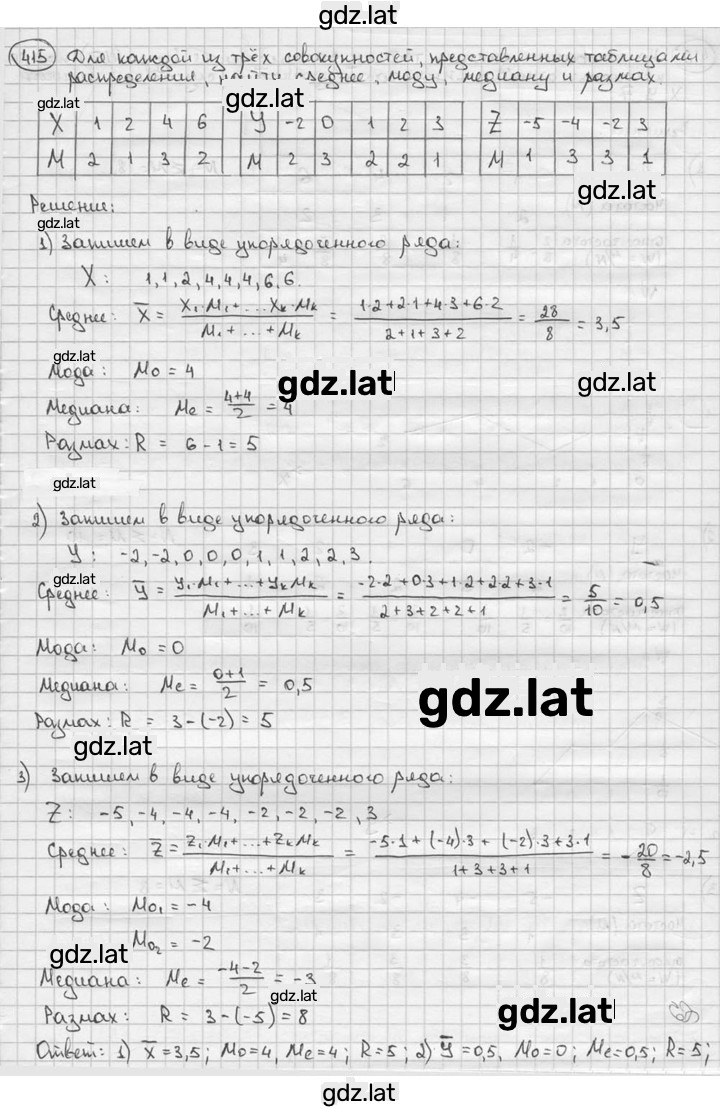 gdz.lat
415 Для каждой из трёх совокупностей, представленных таблицами
распределения, найти среднее, моду, медиану и размах.
gdz.lat gdz.lat
X 1 2 4 6 Y -2 0 1 2 3 Z -5 -4 -2 3
M 2 1 3 2 M 2 3 2 2 1 M 1 3 3 1
gdz.lat
Решение:
gdz.lat
1) Запишем в виде упорядоченного ряда:
X: 1,1,2,4,4,4,6,6.
gdz.lat
Среднее: X̅ = (X₁·M₁+...Xₖ·Mₖ)/(M₁+...+Mₖ) = (1·2+2·1+4·3+6·2)/(2+1+3+2) = 28/8 = 3,5
gdz.lat
Мода: Mo = 4
gdz.lat gdz.lat
Медиана: Me = (4+4)/2 = 4
Размах: R = 6-1 = 5
gdz.lat
2) Запишем в виде упорядоченного ряда:
Y: -2,-2,0,0,0,1,1,2,2,3.
gdz.lat
Среднее: Y̅ = (Y₁·M₁+...+YₖMₖ)/(M₁+...+Mₖ) = (-2·2+0·3+1·2+2·2+3·1)/(2+3+2+2+1) = 5/10 = 0,5
Мода: Mo = 0
Медиана: Me = (0+1)/2 = 0,5
gdz.lat
Размах: R = 3-(-2) = 5
gdz.lat
3) Запишем в виде упорядоченного ряда:
Z: -5,-4,-4,-4,-2,-2,-2,3
Среднее: Z̅ = (Z₁·M₁+...+ZₖMₖ)/(M₁+...+Mₖ) = (-5·1+(-4)·3+(-2)·3+3·1)/(1+3+3+1) = -20/8 = -2,5
Мода: Mo₁ = -4
Mo₂ = -2
gdz.lat
Медиана: Me = (-4-2)/2 = -3
gdz.lat
Размах: R = 3-(-5) = 8
gdz.lat
Ответ: 1) X̅=3,5; Mo=4, Me=4; R=5; 2) Y̅=0,5, Mo=0; Me=0,5; R=5;
gdz.lat